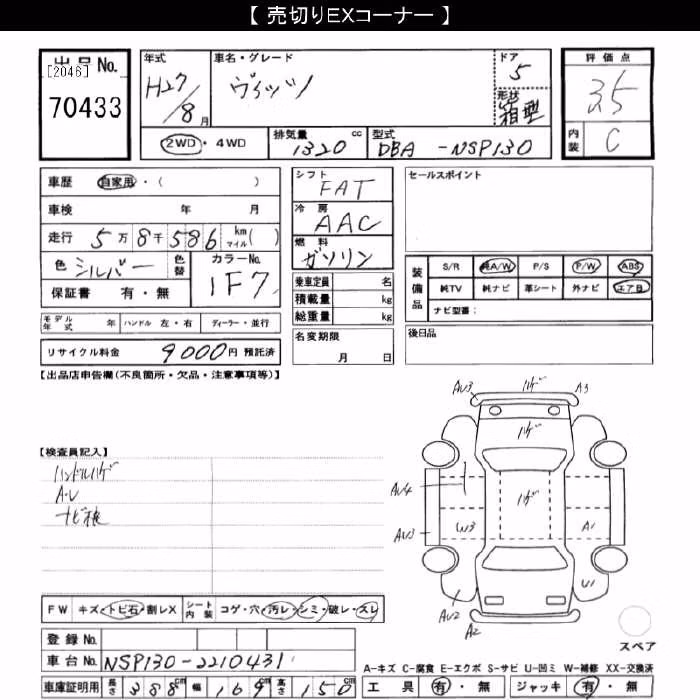 【 売切りEXコーナー 】
出品No.
[2046]
70433
年式
H27/8月
車名・グレード
ヴィッツ
ドア
5
形状
箱型
評価点
3.5
内装
C
2WD・4WD
排気量
1320 cc
型式
DBA -NSP130
車歴 自家用・( )
車検 年 月
走行 5万8千586 km マイル( )
色 シルバー 色替 カラーNo. 1F7
保証書 有・無
モデル年式 年 ハンドル 左・右 ディーラー・並行
リサイクル料金 9000円 預託済
シフト
FAT
冷房
AAC
燃料
ガソリン
乗車定員 名
積載量 kg
総重量 kg
名変期限
月 日
セールスポイント
装備品
S/R 純A/W P/S P/W ABS
純TV 純ナビ 革シート 外ナビ エアB
ナビ型番:
後日品
【出品店申告欄(不良箇所・欠品・注意事項等)】
【検査員記入】
ハンドルハゲ
A・U
ナビ検
FW キズ・トビ石・割レX シート内装 コゲ・穴・汚レ・シミ・破レ・スレ
登録No.
車台No. NSP130-2210431
車庫証明用 長さ 388cm 幅 169cm 高さ 150cm
AU3 ハゲ A3
ハゲ
AU4 ハゲ
AU3 W3 A1
U1
AU2
A2
スペア
A-キズ C-腐食 E-エクボ S-サビ U-凹ミ W-補修 XX-交換済
工具 有・無 ジャッキ 有・無